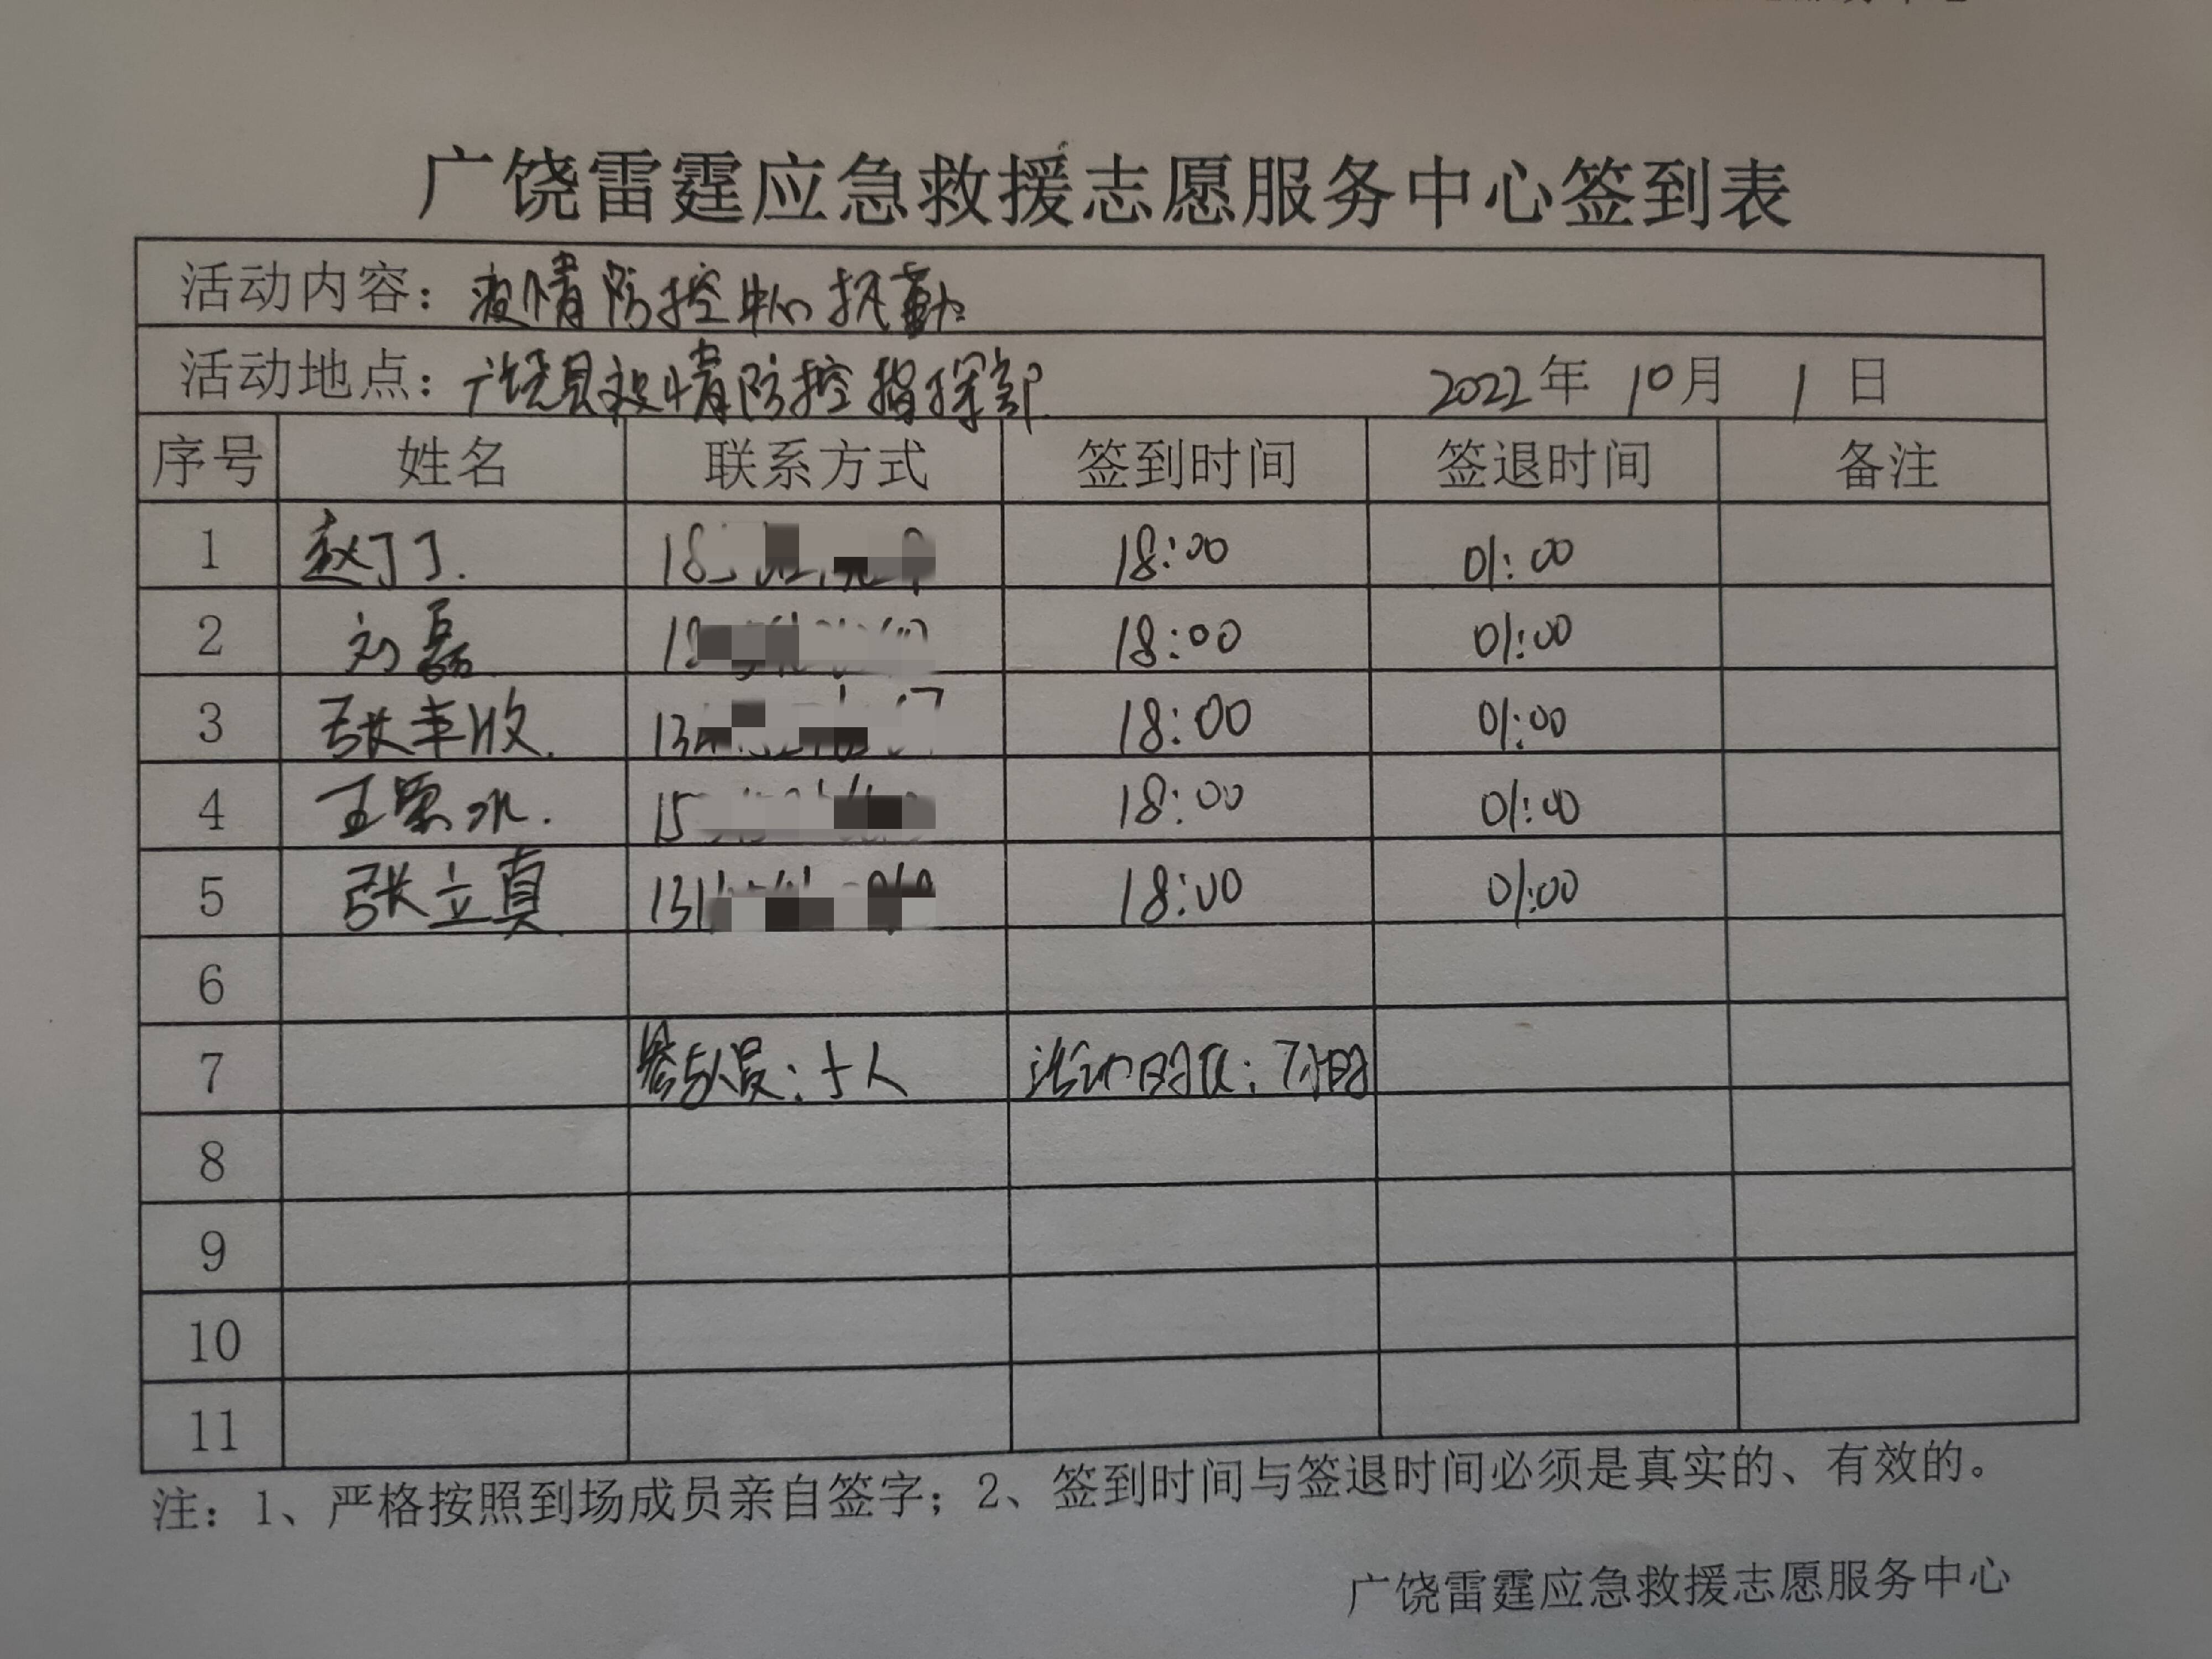 广饶雷霆应急救援志愿服务中心签到表
活动内容：疫情防控中心执勤
活动地点：广饶县疫情防控指挥部 2022年 10月 1日
序号 姓名 联系方式 签到时间 签退时间 备注
1 赵丁丁. 18 18:00 01:00
2 刘磊 18:00 01:00
3 张丰收. 13 18:00 01:00
4 王 水. 15 18:00 01:00
5 张立真 131 18:00 01:00
6
7 参与人员：5人 活动时长：7小时
8
9
10
11
注：1、严格按照到场成员亲自签字；2、签到时间与签退时间必须是真实的、有效的。
广饶雷霆应急救援志愿服务中心